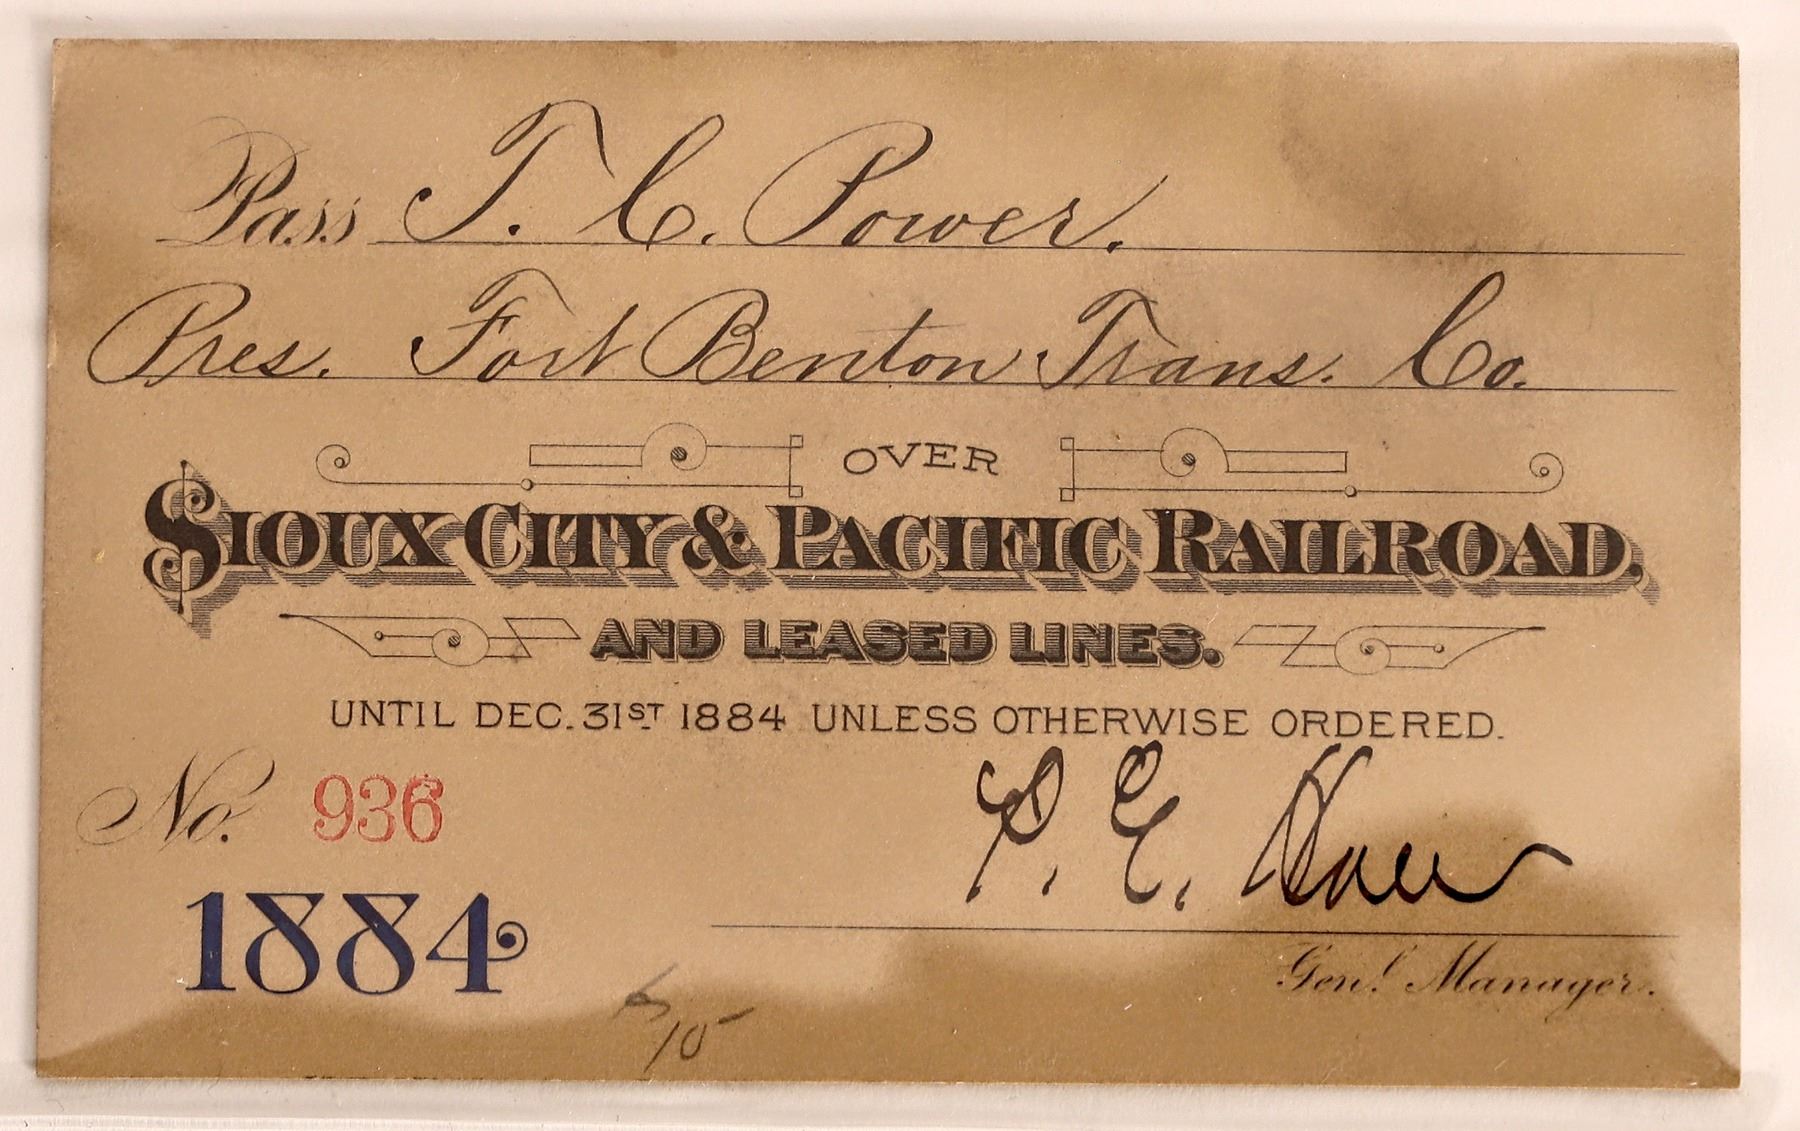 Pass T. C. Power.
Pres. Fort Benton Trans. Co.
OVER
SIOUX CITY & PACIFIC RAILROAD,
AND LEASED LINES.
UNTIL DEC. 31ST 1884 UNLESS OTHERWISE ORDERED.
No. 936
P. E. Hall
1884
Genl. Manager.